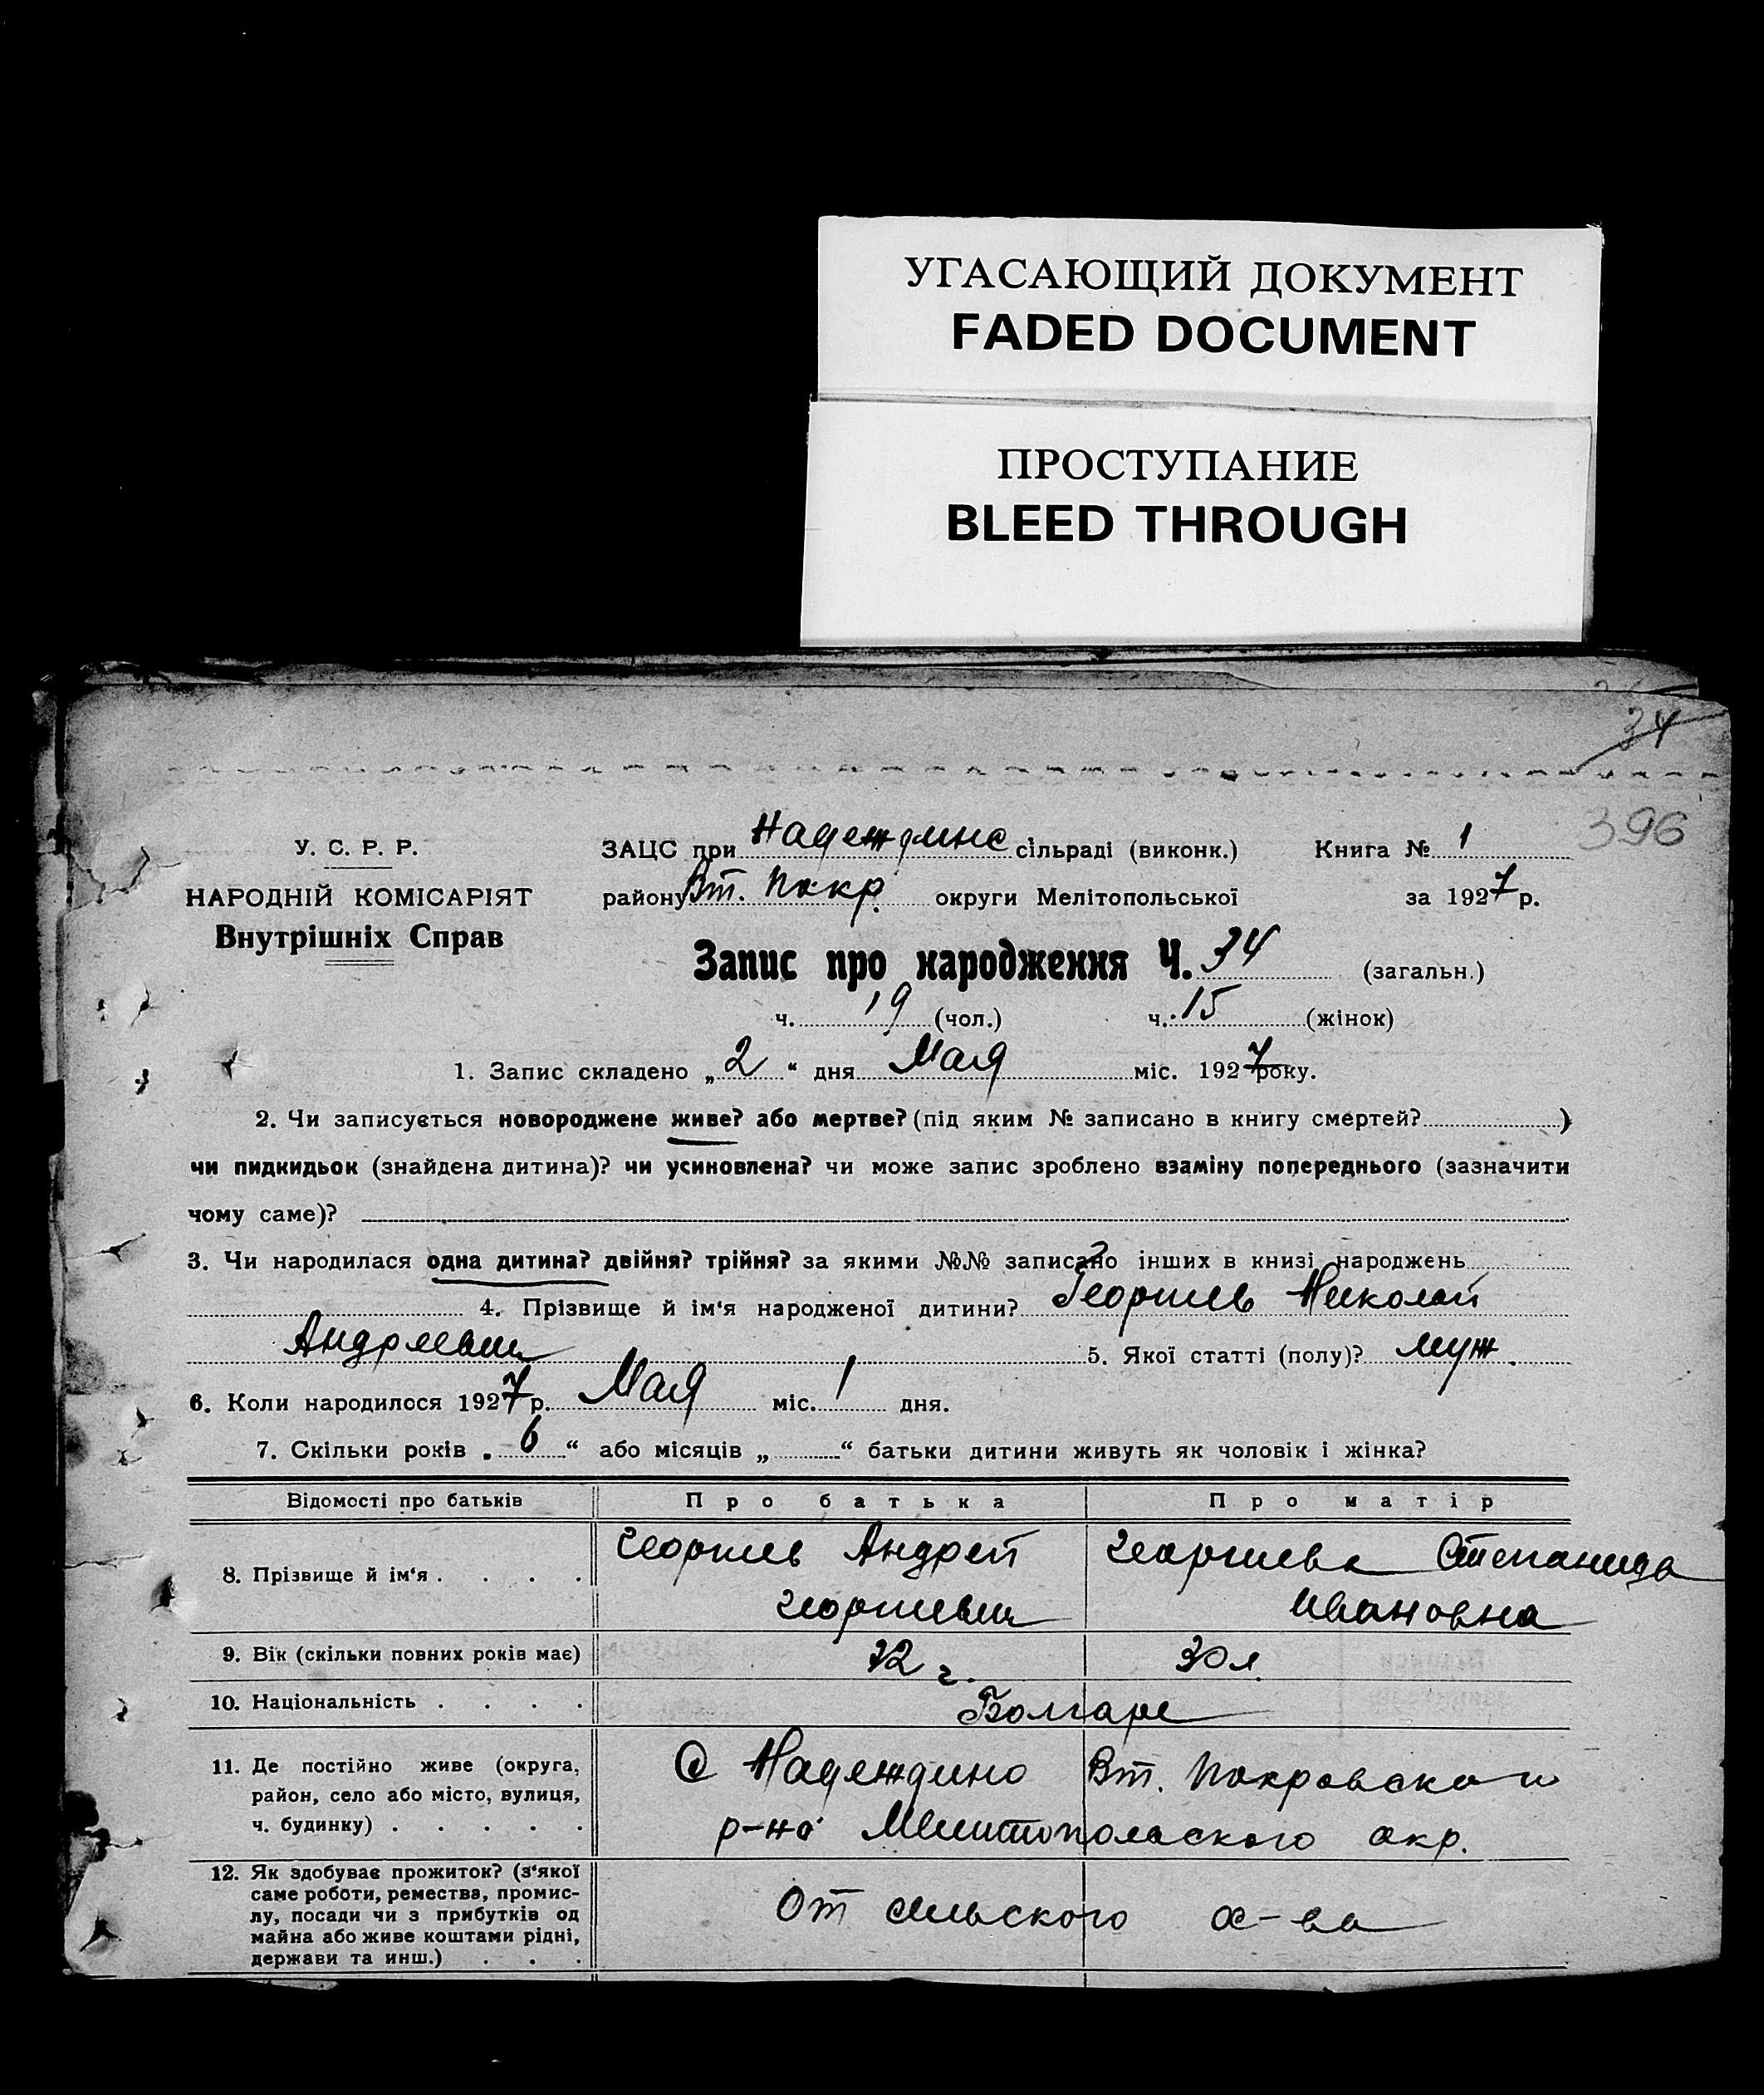 УГАСАЮЩИЙ ДОКУМЕНТ
FADED DOCUMENT
ПРОСТУПАНИЕ
BLEED THROUGH
34
396
У. С. Р. Р.
НАРОДНІЙ КОМІСАРІЯТ
Внутрішніх Справ
ЗАЦС при Надеждине сільраді (виконк.) Книга № 1
району Вт. Покр. округи Мелітопольської за 1927 р.
Запис про народження Ч. 34 (загальн.)
ч. 19 (чол.) ч. 15 (жінок)
1. Запис складено „2“ дня Мая міс. 1927 року.
2. Чи записується новороджене живе? або мертве? (під яким № записано в книгу смертей? )
чи пидкидьок (знайдена дитина)? чи усиновлена? чи може запис зроблено взаміну попереднього (зазначити
чому саме)?
3. Чи народилася одна дитина? двійня? трійня? за якими №№ записано інших в книзі народжень
4. Прізвище й ім‘я народженої дитини? Георгиев Николай
Андреевич 5. Якої статті (полу)? муж.
6. Коли народилося 1927 р. Мая міс. 1 дня.
7. Скільки років „6“ або місяців „ “ батьки дитини живуть як чоловік і жінка?
Відомості про батьків Про батька Про матір
8. Прізвище й ім‘я . . . . Георгиев Андрей Георгиева Степанида
Георгиевич Ивановна
9. Вік (скільки повних років має) 32 г. 30 л.
10. Національність . . . . Болгаре
11. Де постійно живе (округа, район, село або місто, вулиця, ч. будинку) . . . . . С Надеждино Вт. Покровского
р-на Мелитопольского окр.
12. Як здобуває прожиток? (з‘якої
саме роботи, ремества, промис-
лу, посади чи з прибутків од
майна або живе коштами рідні,
держави та инш.) . . .
От сельского х-ва